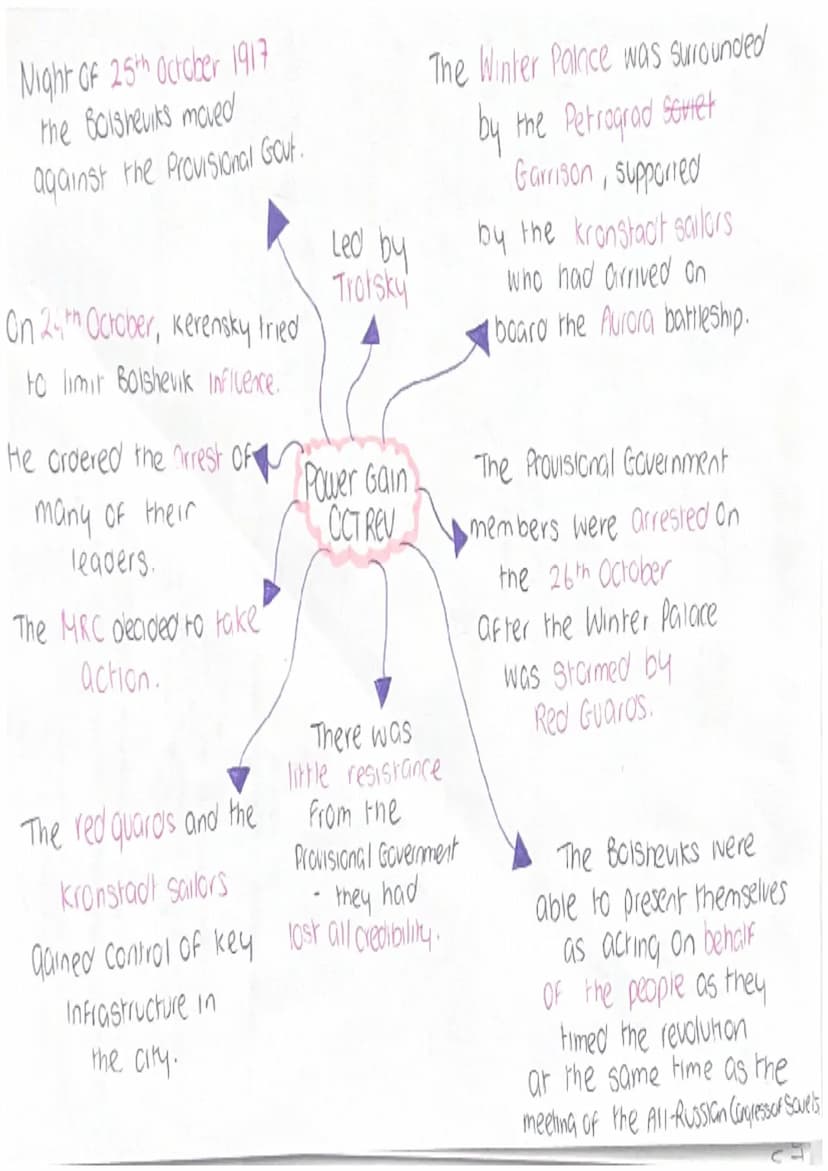 Night of 25th October 1917
the Bolsheviks moved
against the Provisional Govt.
Led by
Trotsky
The Winter Palace was surrounded
by the Petrograd Soviet
Garrison, supported
by the Kronstadt sailors
who had arrived on
board the Aurora battleship.
On October, Kerensky tried
to limit Bolshevik influence.
He ordered the arrest of
many of their
leaders.
The MRC decided to take
action.
Power Gain
OCT REV
The Provisional Government
members were arrested on
the 26th October
after the Winter Palace
was stormed by
Red Guards.
The red guards and the
Kronstadt sailors
gained control of key
infrastructure in
the city.
There was
little resistance
from the
Provisional Government
- they had
lost all credibility.
The Bolsheviks were
able to present themselves
as acting on behalf
of the people as they
timed the revolution
at the same time as the
meeting of the All-Russian Congress of Soviets